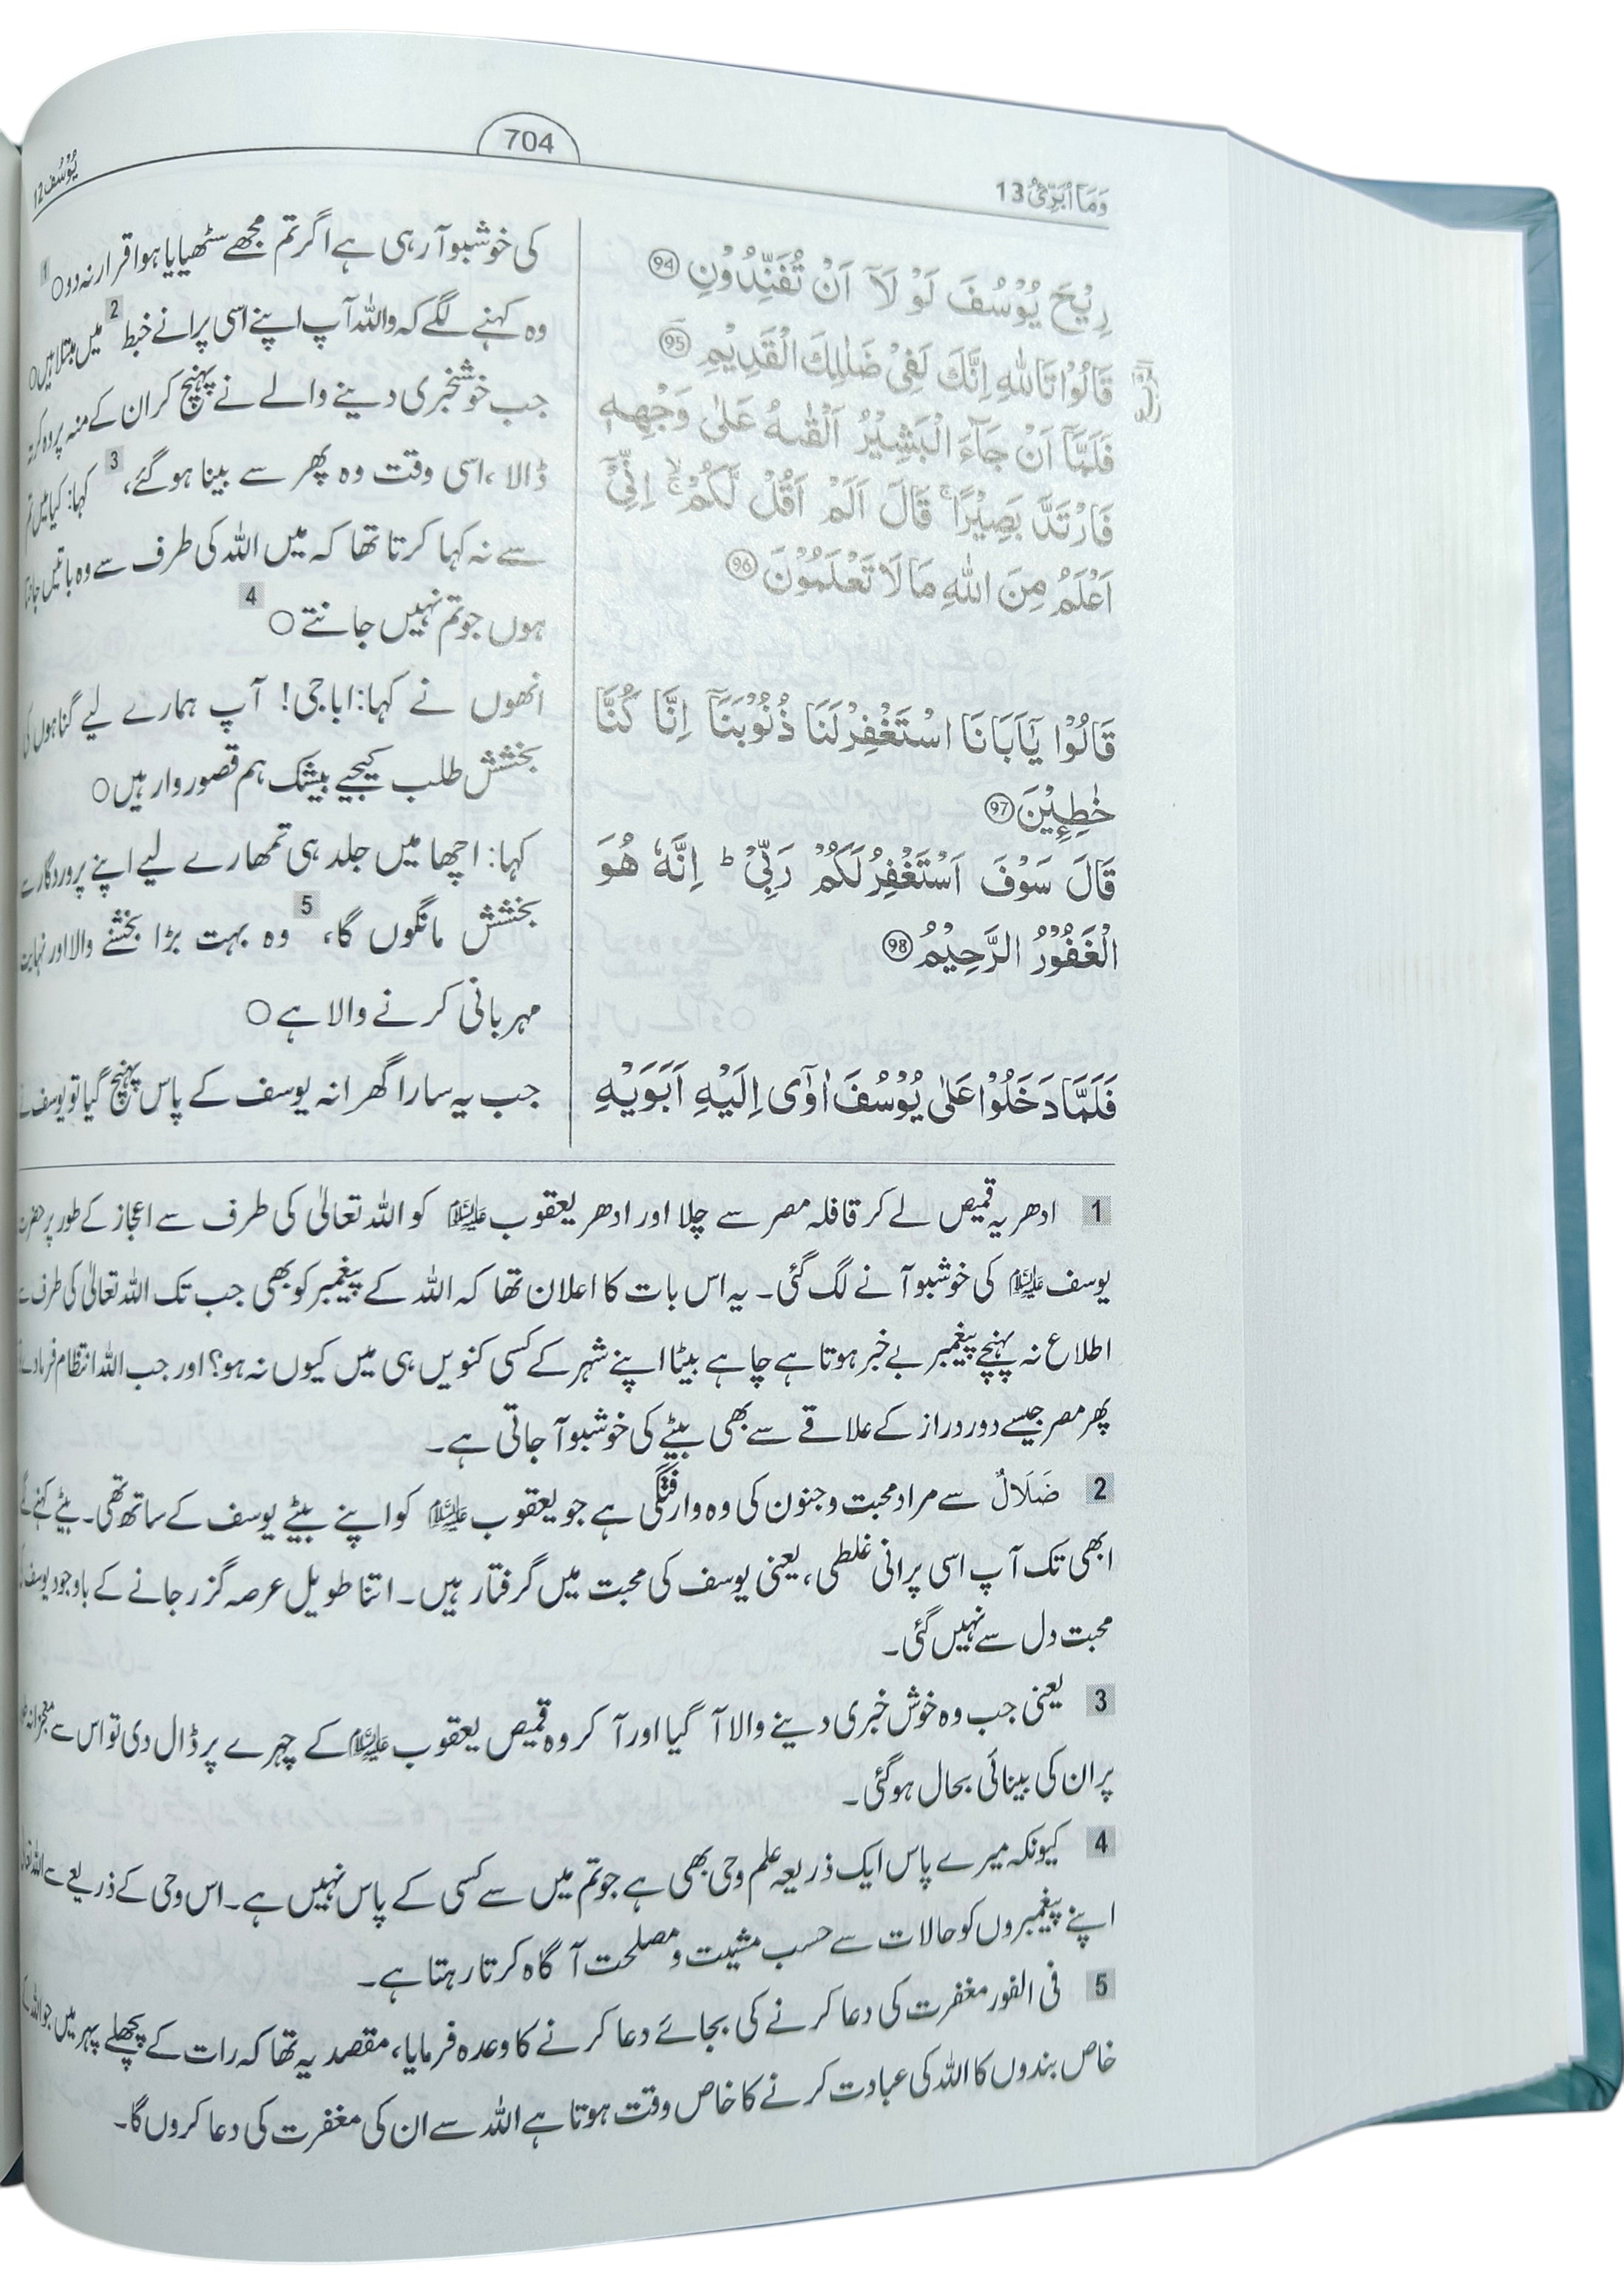 وَمَآ اُبَرِّئُ 13
704
يُوْسُف 12
رِيْحَ يُوْسُفَ لَوْ لَآ اَنْ تُفَنِّدُوْنِ 94
قَالُوْا تَاللّٰهِ اِنَّكَ لَفِيْ ضَلٰلِكَ الْقَدِيْمِ 95
فَلَمَّآ اَنْ جَآءَ الْبَشِيْرُ اَلْقٰىهُ عَلٰى وَجْهِهٖ
فَارْتَدَّ بَصِيْرًا ۚ قَالَ اَلَمْ اَقُلْ لَّكُمْ ۙۚ اِنِّيْٓ
اَعْلَمُ مِنَ اللّٰهِ مَا لَا تَعْلَمُوْنَ 96
قَالُوْا يٰٓاَبَانَا اسْتَغْفِرْ لَنَا ذُنُوْبَنَآ اِنَّا كُنَّا
خٰطِـِٕيْنَ 97
قَالَ سَوْفَ اَسْتَغْفِرُ لَكُمْ رَبِّيْ ؕ اِنَّهٗ هُوَ
الْغَفُوْرُ الرَّحِيْمُ 98
فَلَمَّا دَخَلُوْا عَلٰى يُوْسُفَ اٰوٰٓى اِلَيْهِ اَبَوَيْهِ
کی خوشبو آ رہی ہے اگر تم مجھے سٹھیایا ہوا قرار نہ دو ○ 1
وہ کہنے لگے کہ واللہ آپ اپنے اسی پرانے خبط 2 میں مبتلا ہیں ○
جب خوشخبری دینے والے نے پہنچ کر ان کے منہ پر وہ کرتہ
ڈالا، اسی وقت وہ پھر سے بینا ہو گئے، 3 کہا: کیا میں تم
سے نہ کہا کرتا تھا کہ میں اللہ کی طرف سے وہ باتیں جانتا
ہوں جو تم نہیں جانتے ○ 4
انھوں نے کہا: ابا جی! آپ ہمارے لیے گناہوں کی
بخشش طلب کیجیے بیشک ہم قصور وار ہیں ○
کہا: اچھا میں جلد ہی تمھارے لیے اپنے پروردگار سے
بخشش مانگوں گا، 5 وہ بہت بڑا بخشنے والا اور نہایت
مہربانی کرنے والا ہے ○
جب یہ سارا گھرانہ یوسف کے پاس پہنچ گیا تو یوسف نے
1 ادھر یہ قمیص لے کر قافلہ مصر سے چلا اور ادھر یعقوب علیہ السلام کو اللہ تعالیٰ کی طرف سے اعجاز کے طور پر حضرت
یوسف علیہ السلام کی خوشبو آنے لگ گئی۔ یہ اس بات کا اعلان تھا کہ اللہ کے پیغمبر کو بھی جب تک اللہ تعالیٰ کی طرف سے
اطلاع نہ پہنچے پیغمبر بے خبر ہوتا ہے چاہے بیٹا اپنے شہر کے کسی کنویں ہی میں کیوں نہ ہو؟ اور جب اللہ انتظام فرما دے
پھر مصر جیسے دور دراز کے علاقے سے بھی بیٹے کی خوشبو آ جاتی ہے۔
2 ضَلَالٌ سے مراد محبت و جنون کی وہ وارفتگی ہے جو یعقوب علیہ السلام کو اپنے بیٹے یوسف کے ساتھ تھی۔ بیٹے کہنے لگے
ابھی تک آپ اسی پرانی غلطی، یعنی یوسف کی محبت میں گرفتار ہیں۔ اتنا طویل عرصہ گزر جانے کے باوجود یوسف کی
محبت دل سے نہیں گئی۔
3 یعنی جب وہ خوش خبری دینے والا آ گیا اور آ کر وہ قمیص یعقوب علیہ السلام کے چہرے پر ڈال دی تو اس سے معجزانہ
پر ان کی بینائی بحال ہو گئی۔
4 کیونکہ میرے پاس ایک ذریعہ علم وحی بھی ہے جو تم میں سے کسی کے پاس نہیں ہے۔ اس وحی کے ذریعے سے اللہ تعالیٰ
اپنے پیغمبروں کو حالات سے حسب مشیت و مصلحت آگاہ کرتا رہتا ہے۔
5 فی الفور مغفرت کی دعا کرنے کی بجائے دعا کرنے کا وعدہ فرمایا، مقصد یہ تھا کہ رات کے پچھلے پہر میں جو اللہ کے
خاص بندوں کا اللہ کی عبادت کرنے کا خاص وقت ہوتا ہے اللہ سے ان کی مغفرت کی دعا کروں گا۔